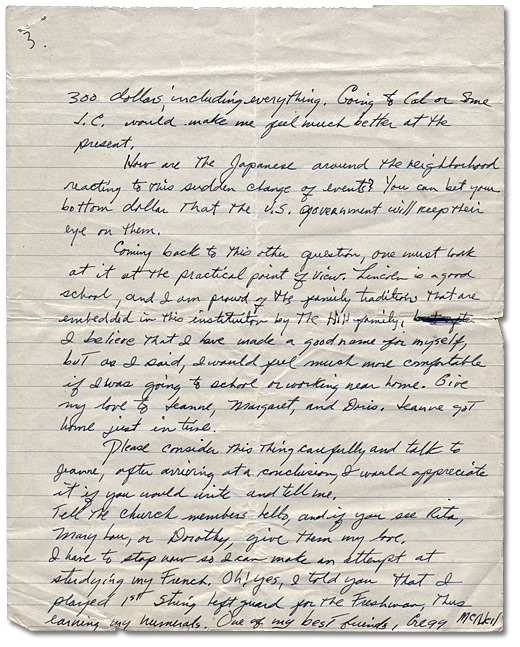 "3."
300 dollars, including everything. Going to Cal or some
J.C. would make me feel much better at the
present.
How are the Japanese around the neighborhood
reacting to this sudden change of events? You can bet your
bottom dollar that the U.S. government will keep their
eye on them.
Coming back to this other question, one must look
at it at the practical point of view. Lincoln is a good
school, and I am proud of the family tradition that are
embedded in this institution by the Hill family,
I believe that I have made a good name for myself,
but as I said, I would feel much more comfortable
if I was going to school or working near home. Give
my love to Jeanne, Margaret, and Doris. Jeanne got
home just in time.
Please consider this thing carefully and talk to
Jeanne, after arriving at a conclusion, I would appreciate
it if you would write and tell me.
Tell the church members hello, and if you see Rita,
Mary Lou, or Dorothy, give them my love.
I have to stop now so I can make an attempt at
studying my French. Oh! yes, I told you that I
played 1st string left guard for the Freshman, thus
earning my numerals. One of my best friends, Gregg